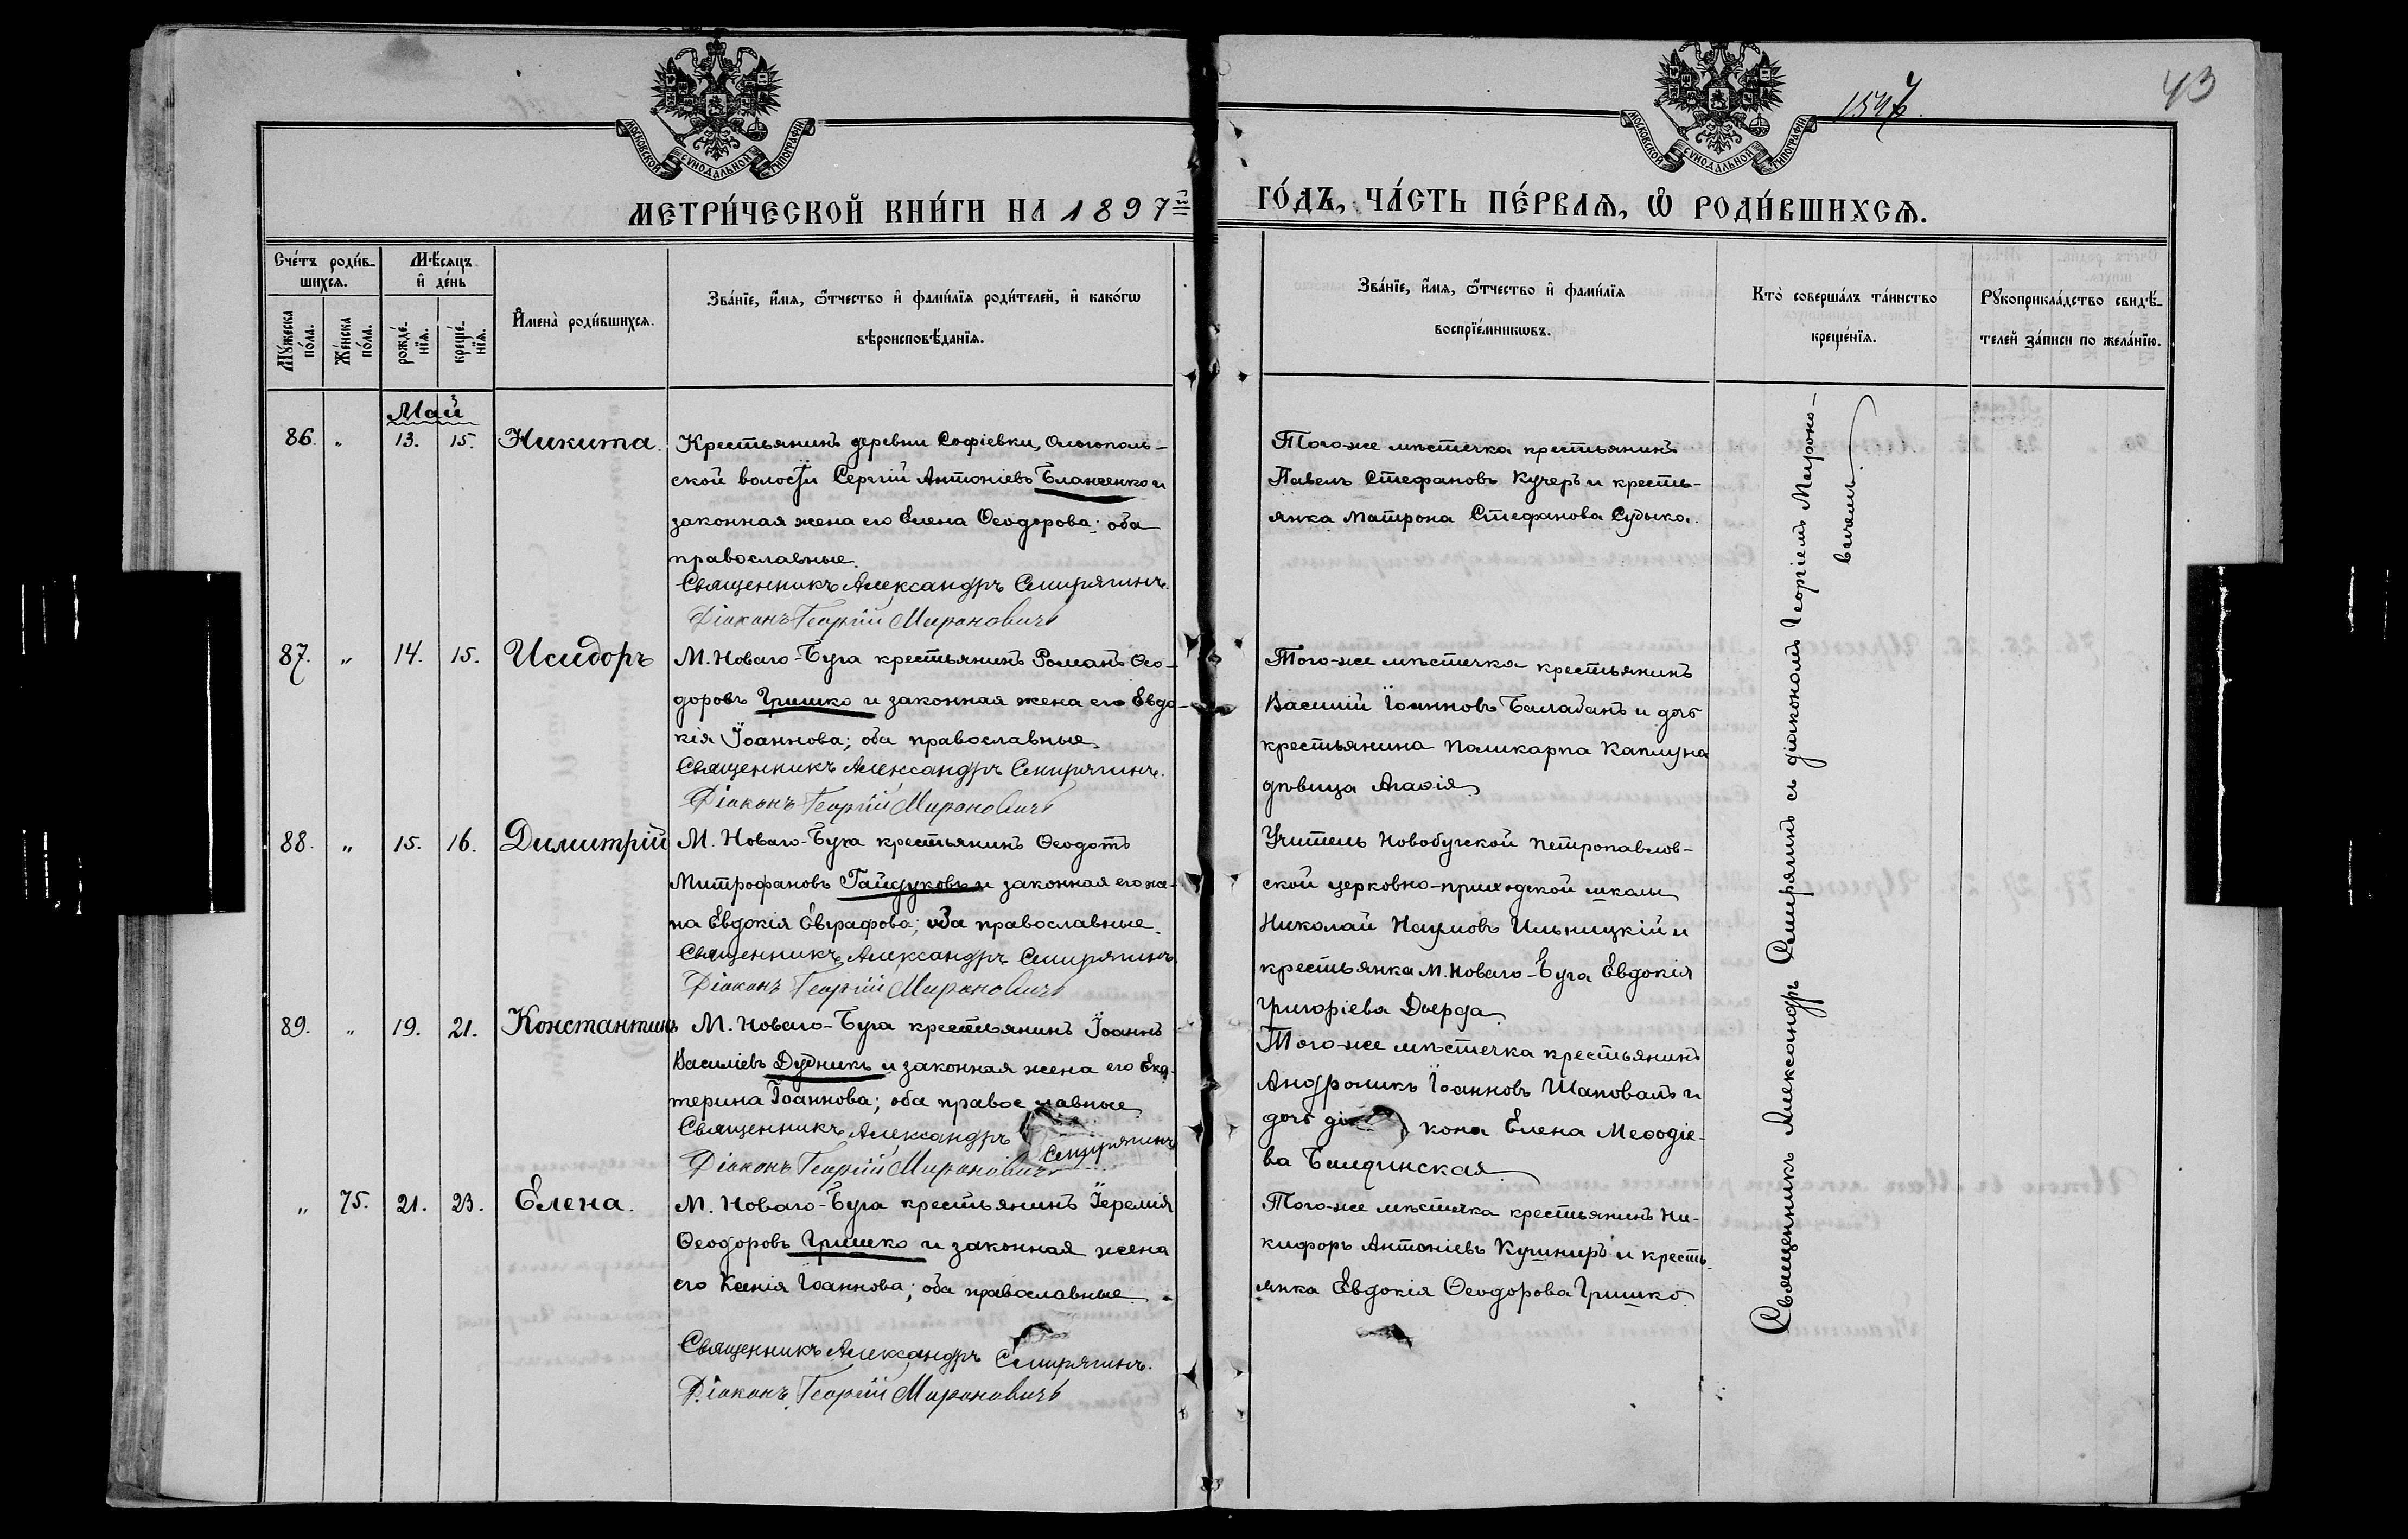 МОСКОВСКОЙ СУНОДАЛЬНОЙ ТИПОГРАФІИ
МОСКОВСКОЙ СУНОДАЛЬНОЙ ТИПОГРАФІИ
43
МЕТРИ́ЧЕСКОЙ КНИ́ГИ НА 1897й
ГО́ДЪ, ЧА́СТЬ ПЕ́РВАѦ, Ѡ҆ РОДИ́ВШИХСѦ.
Сче́тъ роди́в-
шихсѧ.
Мꙋ́жеска по́ла.
Же́нска по́ла.
Мѣ́сѧцъ
и҆ де́нь
рожде́-
нїѧ.
креще́-
нїѧ.
И҆мена̀ роди́вшихсѧ.
Зва́нїе, и҆́мѧ, ѻ҆́тчество и҆ фами́лїѧ роди́телей, и҆ како́гѡ
вѣроисповѣ́данїѧ.
Зва́нїе, и҆́мѧ, ѻ҆́тчество и҆ фами́лїѧ
воспрїе́мникѡвъ.
Кто̀ соверша́лъ та́инство
креще́нїѧ.
Рꙋкоприкла́дство свидѣ́-
телей за́писи по жела́нїю.
Май
86. „ 13. 15. Никита.
Крестьянинъ деревни Софіевки, Ольгополь-
ской волости Сергій Антоніевъ
законная жена его Елена Ѳеодорова; оба
православные.
Священникъ Александръ Смирягинъ.
Діаконъ Георгій Мироновичъ
Того-же мѣстечка крестьянинъ
Павелъ Стефановъ Кучеръ и кресть-
янка Матрона Стефанова Судыка.
87. „ 14. 15. Исидоръ
М. Новаго-Буга крестьянинъ Романъ Ѳео-
доровъ Гришко и законная жена его Евдо-
кія Іоаннова; оба православные.
Священникъ Александръ Смирягинъ.
Діаконъ Георгій Мироновичъ
Того-же мѣстечка крестьянинъ
Василій Іоанновъ Балабанъ и дочь
крестьянина Поликарпа Каплуна
дѣвица Агаѳія.
88. „ 15. 16. Димитрій
М. Новаго-Буга крестьянинъ Ѳеодотъ
Митрофановъ Гайдуковъ и законная его же-
на Евдокія Евграфова; оба православные.
Священникъ Александръ Смирягинъ
Діаконъ Георгій Мироновичъ
Учитель Новобугской Петропавлов-
ской церковно-приходской школы
Николай Наумовъ Ильницкій и
крестьянка М. Новаго-Буга Евдокія
Григоріева
89. „ 19. 21. Константинъ
М. Новаго-Буга крестьянинъ Іоаннъ
Василіевъ Дудникъ и законная жена его Ека-
терина Іоаннова; оба православные.
Священникъ Александръ Смирягинъ
Діаконъ Георгій Мироновичъ
Того-же мѣстечка крестьянинъ
Андроникъ Іоанновъ Шаповалъ и
дочь діакона Елена Меѳодіе-
ва
„ 75. 21. 23. Елена.
М. Новаго-Буга крестьянинъ Іеремія
Ѳеодоровъ Гришко и законная жена
его Ксенія Іоаннова; оба православные.
Священникъ Александръ Смирягинъ.
Діаконъ Георгій Мироновичъ
Того-же мѣстечка крестьянинъ Ни-
кифоръ Антоніевъ Кушниръ и кресть-
янка Евдокія Ѳеодорова Гришко.
Священникъ Александръ Смирягинъ съ діакономъ Георгіемъ Мироно-
вичемъ.